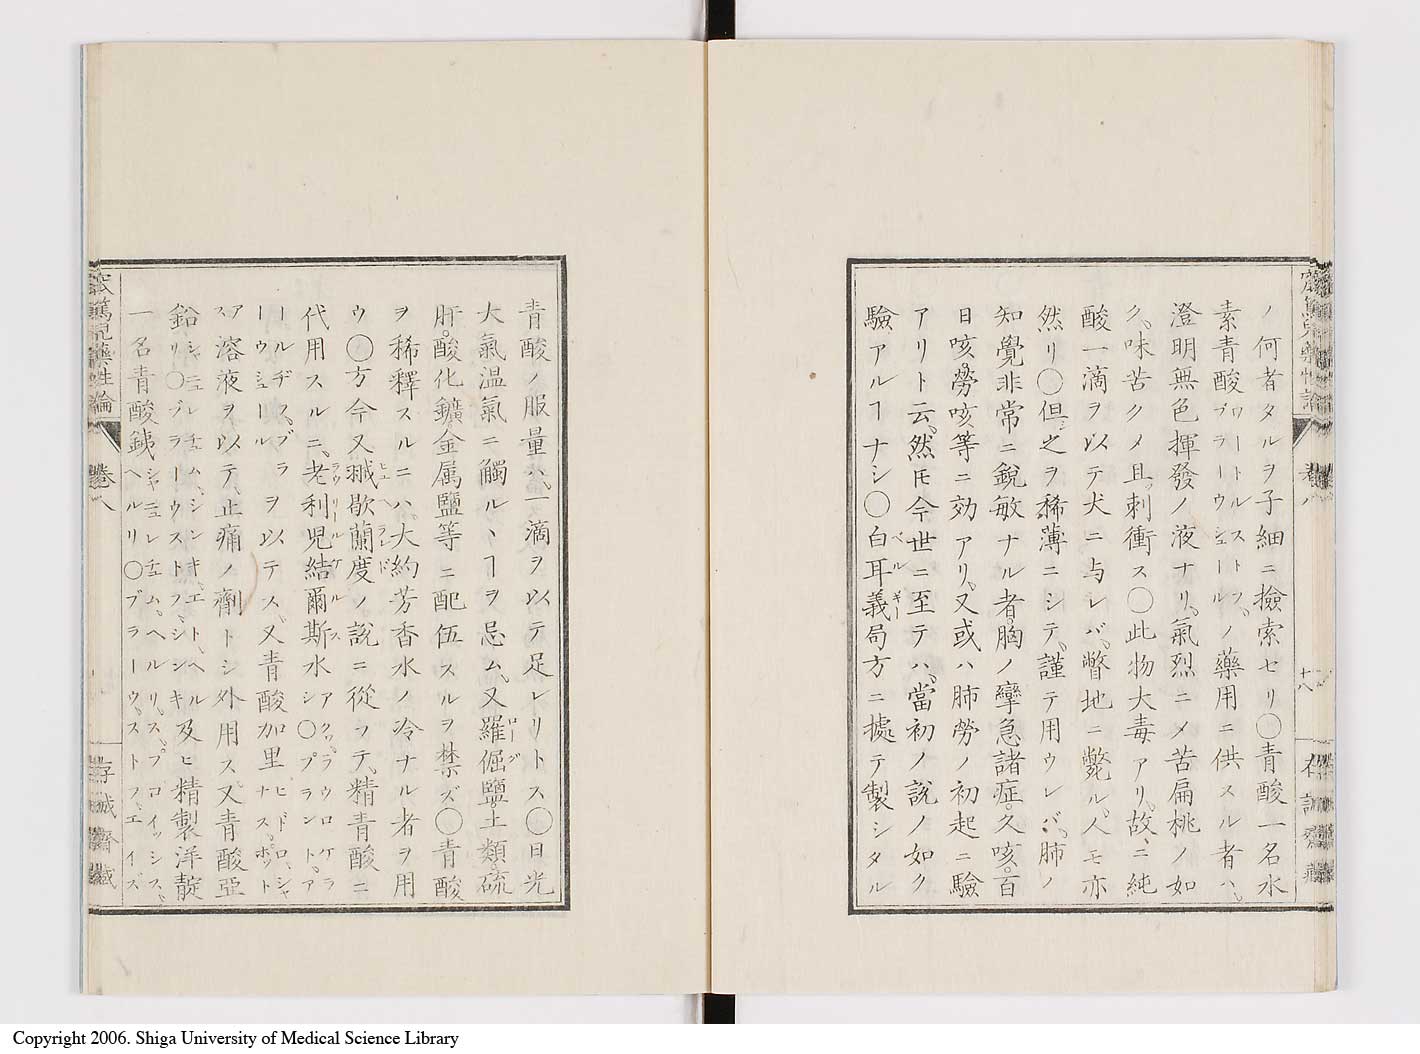 ノ何者タルヲ子細ニ撿索セリ〇青酸一名水
素青酸ワートルストフ、ブラーウシュールノ藥用ニ供スル者ハ、
澄明無色揮發ノ液ナリ、氣烈ニメ苦扁桃ノ如
ク、味苦クメ且刺衝ス〇此物大毒アリ、故ニ純
酸一滴ヲ以テ犬ニ与レバ、瞥地ニ斃ル、人モ亦
然リ〇但之ヲ稀薄ニシテ、謹テ用ウレバ、肺ノ
知覺非常ニ銳敏ナル者、胸ノ攣急諸症、久咳、百
日咳、勞咳等ニ効アリ、又或ハ肺勞ノ初起ニ驗
アリト云、然𪜈今世ニ至テハ、當初ノ説ノ如ク
驗アルヿナシ〇白耳義ベルギー局方ニ據テ製シタル
宏篤兒藥性論 卷八 十八
青酸ノ服量ハ、一滴ヲ以テ足レリトス〇日光
大氣温氣ニ觸ルヽヿヲ忌ム、又羅倔ローグ鹽、土類、硫
肝、酸化鑛、金属鹽等ニ配伍スルヲ禁ズ〇青酸
ヲ稀釋スルニハ、大約芳香水ノ冷ナル者ヲ用
ウ〇方今又㵨歇蘭度ヒュヘランドノ説ニ從フテ、精青酸ニ
代用スルニ、老利兒結爾斯ラウリールケルス水アクア、ラウロケラシ〇プラント、ア
ールヂス、ブラーウシュールヲ以テス、又青酸加里ヒドロ、シャナス、ポット
アスノ溶液ヲ以テ、止痛ノ劑トシ外用ス、又青酸亞
鉛シャニュレチュム、シンキ、エト、ヘルリ〇ブラーウストフ、シンキ及ヒ精製洋靛
一名青酸銕シャニュレチュム、ヘルリ、ス、プロイッシス、ヘルリ〇ブラーウ、ストフ、エイズ
宏篤兒藥性論 卷八 存誠齋藏
Copyright 2006. Shiga University of Medical Science Library